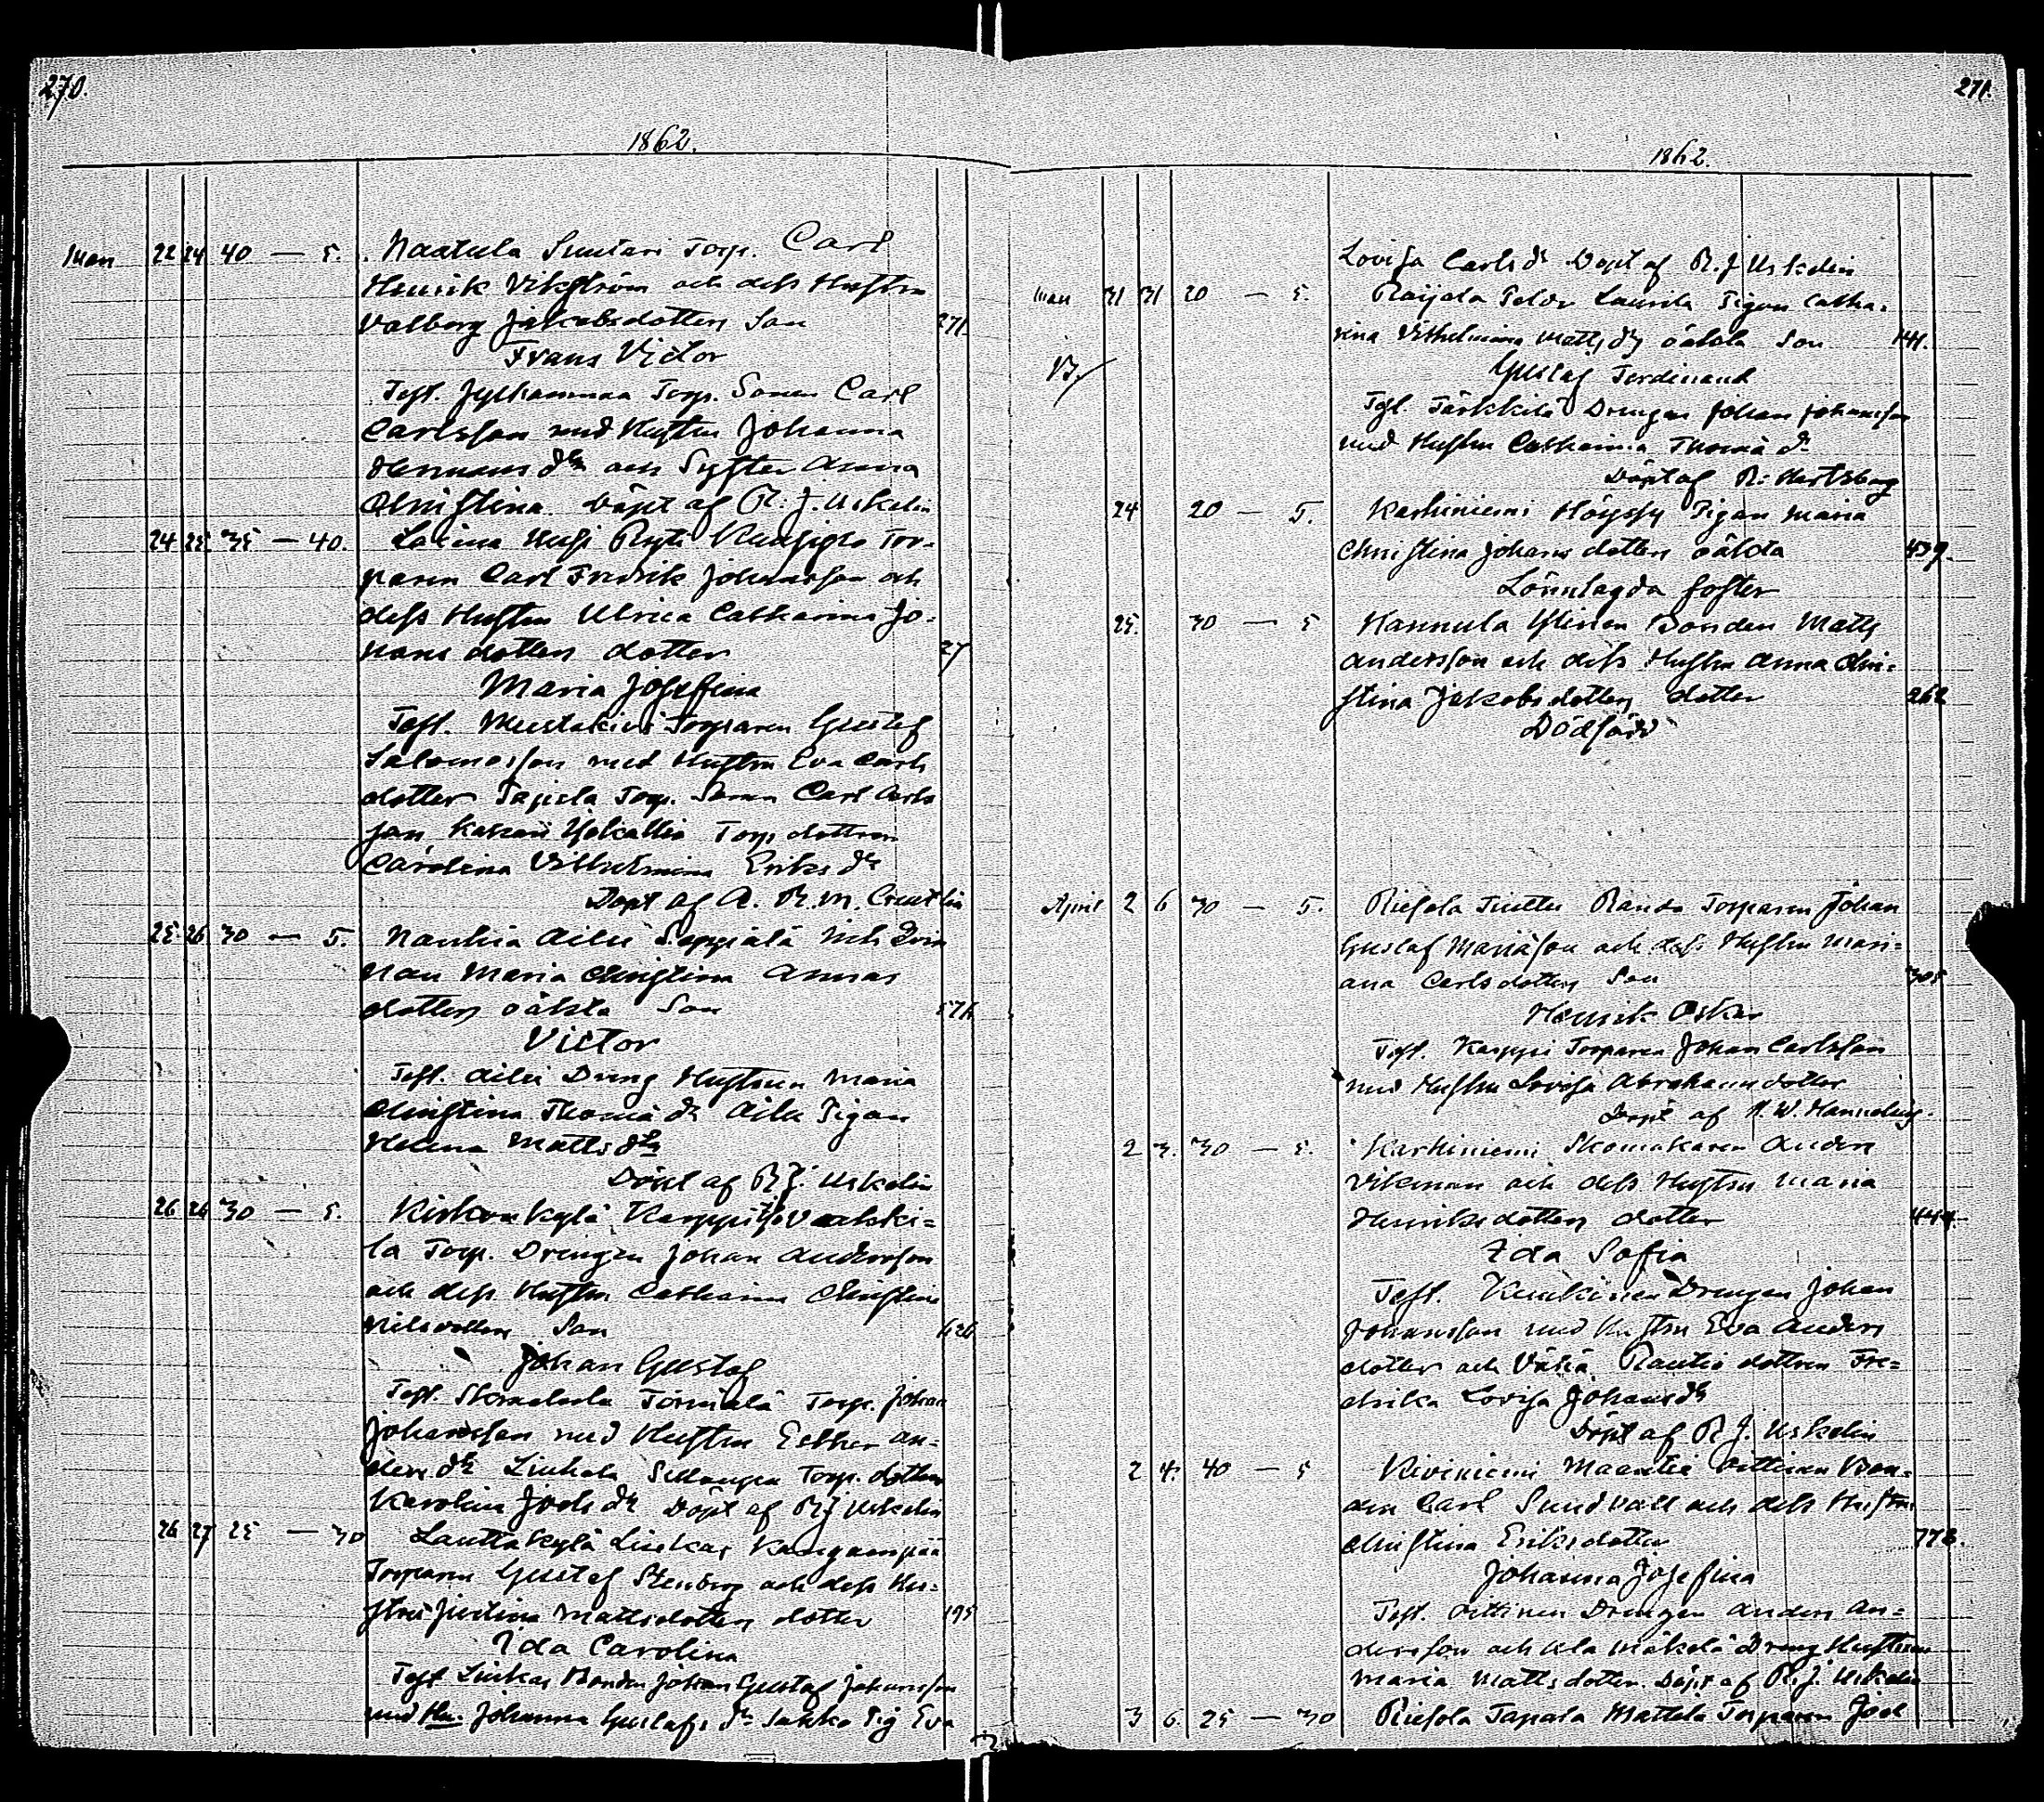 270.
1862.
Mars 22 24 40 — 5. Naatula Suutari Torp. Carl
Henrik Vikström och dess Hustru
Valborg Jakobsdotters Son 271.
Frans Victor
Test. Jylhänmaa Torp. Sonen Carl
Carlsson med Hustru Johanna
Hermans dr och Syster Anna
Christina. Döpt af R. J. Uskelin
24 25 35 — 40. Torparen Carl Fredrik Johansson och
dess Hustru Ulrica Catharina Jo-
hans dotters dotter 27
Maria Josefina
Test. Torparen Gustaf
Salomosson med Hustru Eva Carls
dotter Torp. Sonen Carl Carls
son Torp dottren
Carolina Vilhelmina Eriks dr
Döpt af A. R. M.
25 26 30 — 5. Nanhia Ailii Seppälä Inh Qvin
nan Maria Christina Annas
dotters oäkta Son 571
Victor
Test. Ailii Dräng Hustrun Maria
Christina Thomä dr Aila Pigan
Helena Matts dr
Döpt af R. J. Uskelin
26 26 30 — 5. Kirkonkylä
la Torp. Drengen Johan Andersson
och dess Hustru Catharina Christina
Nilsdotters Son 626
Johan Gustaf
Test. Törmälä Torp. Johan
Johansson med Hustru Esther An-
ders dr Torp. dottren
Karolina Joels dr Döpt af R J Uskelin
26 27 25 — 30 Lauttakylä Liukas Kangaanpää
Torparen Gustaf Stenberg och dess Hu-
stru Justina Mattsdotters dotter 195
Ida Carolina
Test Liukas Bonden Johan Gustaf Johansson
med Hu. Johanna Gustafs dr Sakko Pig Eva
271.
1862.
Lovisa Carls dr Döpt af R. J Uskelin
Mars 31 31 20 — 5. Raijala Laurila Pigan Catha-
rina Vilhelmina Matts drs oäkta Son 141.
Gustaf Ferdinand
Test. Tärkkilä Drengen Johan Johansson
med Hustru Catharina Thomä dr
Döpt af R: Hertzberg
24 20 — 5. Karhiniemi Höyssy Pigan Maria
Christina Johans dotters oäkta 439.
Lönnlagda foster
25. 30 — 5 Hannula Ylinen Bonden Matts
Andersson och dess Hustru Anna Chri-
stina Jakobsdotters dotter 262
Dödfödd
April 2 6 30 — 5. Riesola Torparen Johan
Gustaf Mariäson och dess Hustru Mari-
ana Carlsdotters Son 305
Henrik Oskar
Test. Karppi Torparen Johan Carlsson
med Hustru Lovisa Abrahamsdotter
Döpt af
2 3. 30 — 5. Karhiniemi Skomakaren Anders
Vikman och dess Hustru Maria
Henriksdotters dotter 444.
Ida Sofia
Test. Drengen Johan
Johansson med Hustru Eva Anders
dotter och Rautio dottren Fre-
drika Lovisa Johans dr
Döpt af R J. Uskelin
2 4. 40 — 5 Kiviniemi Maantie Oittinen Bon-
den Carl Sundvall och dess Hustru
Christina Eriksdotter 778.
Johanna Josefina
Test. Oittinen Drengen Anders An-
dersson och Ala Mäkelä Dreng Hustrun
Maria Mattsdotter. Döpt af R. J. Uskelin
3 6. 25 — 30 Riesola Tapala Mattila Torparen Joel